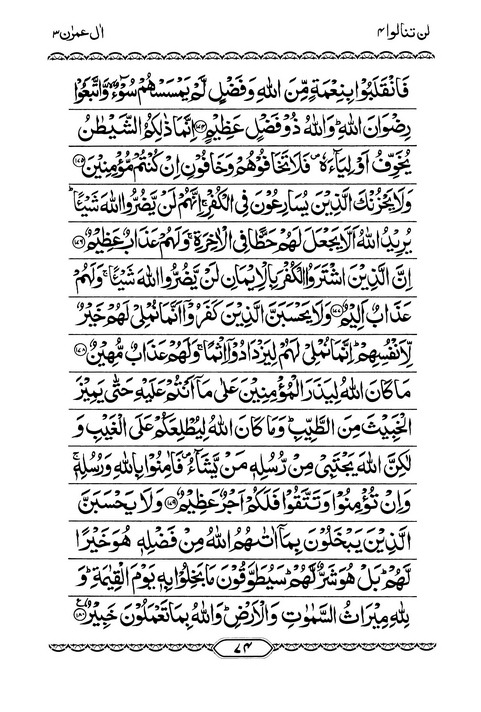 لن تنالوا ۴
اٰل عمرٰن ۳
فَانْقَلَبُوْا بِنِعْمَةٍ مِّنَ اللّٰهِ وَفَضْلٍ لَّمْ يَمْسَسْهُمْ سُوْٓءٌ ۙ وَّاتَّبَعُوْا
رِضْوَانَ اللّٰهِ ؕ وَاللّٰهُ ذُوْ فَضْلٍ عَظِيْمٍ ﴿۱۷۴﴾ اِنَّمَا ذٰلِكُمُ الشَّيْطٰنُ
يُخَوِّفُ اَوْلِيَآءَهٗ ۪ فَلَا تَخَافُوْهُمْ وَخَافُوْنِ اِنْ كُنْتُمْ مُّؤْمِنِيْنَ ﴿۱۷۵﴾
وَلَا يَحْزُنْكَ الَّذِيْنَ يُسَارِعُوْنَ فِي الْكُفْرِ ۚ اِنَّهُمْ لَنْ يَّضُرُّوا اللّٰهَ شَيْـًٔا ؕ
يُرِيْدُ اللّٰهُ اَلَّا يَجْعَلَ لَهُمْ حَظًّا فِي الْاٰخِرَةِ ۚ وَلَهُمْ عَذَابٌ عَظِيْمٌ ﴿۱۷۶﴾
اِنَّ الَّذِيْنَ اشْتَرَوُا الْكُفْرَ بِالْاِيْمَانِ لَنْ يَّضُرُّوا اللّٰهَ شَيْـًٔا ۚ وَلَهُمْ
عَذَابٌ اَلِيْمٌ ﴿۱۷۷﴾ وَلَا يَحْسَبَنَّ الَّذِيْنَ كَفَرُوْۤا اَنَّمَا نُمْلِيْ لَهُمْ خَيْرٌ
لِّاَنْفُسِهِمْ ؕ اِنَّمَا نُمْلِيْ لَهُمْ لِيَزْدَادُوْۤا اِثْمًا ۚ وَلَهُمْ عَذَابٌ مُّهِيْنٌ ﴿۱۷۸﴾
مَا كَانَ اللّٰهُ لِيَذَرَ الْمُؤْمِنِيْنَ عَلٰى مَاۤ اَنْتُمْ عَلَيْهِ حَتّٰى يَمِيْزَ
الْخَبِيْثَ مِنَ الطَّيِّبِ ؕ وَمَا كَانَ اللّٰهُ لِيُطْلِعَكُمْ عَلَى الْغَيْبِ وَ
لٰكِنَّ اللّٰهَ يَجْتَبِيْ مِنْ رُّسُلِهٖ مَنْ يَّشَآءُ ۪ فَاٰمِنُوْا بِاللّٰهِ وَرُسُلِهٖ ۚ
وَاِنْ تُؤْمِنُوْا وَتَتَّقُوْا فَلَكُمْ اَجْرٌ عَظِيْمٌ ﴿۱۷۹﴾ وَلَا يَحْسَبَنَّ
الَّذِيْنَ يَبْخَلُوْنَ بِمَاۤ اٰتٰىهُمُ اللّٰهُ مِنْ فَضْلِهٖ هُوَ خَيْرًا
لَّهُمْ ؕ بَلْ هُوَ شَرٌّ لَّهُمْ ؕ سَيُطَوَّقُوْنَ مَا بَخِلُوْا بِهٖ يَوْمَ الْقِيٰمَةِ ؕ وَ
لِلّٰهِ مِيْرَاثُ السَّمٰوٰتِ وَالْاَرْضِ ؕ وَاللّٰهُ بِمَا تَعْمَلُوْنَ خَبِيْرٌ ﴿۱۸۰﴾ ع
۷۴